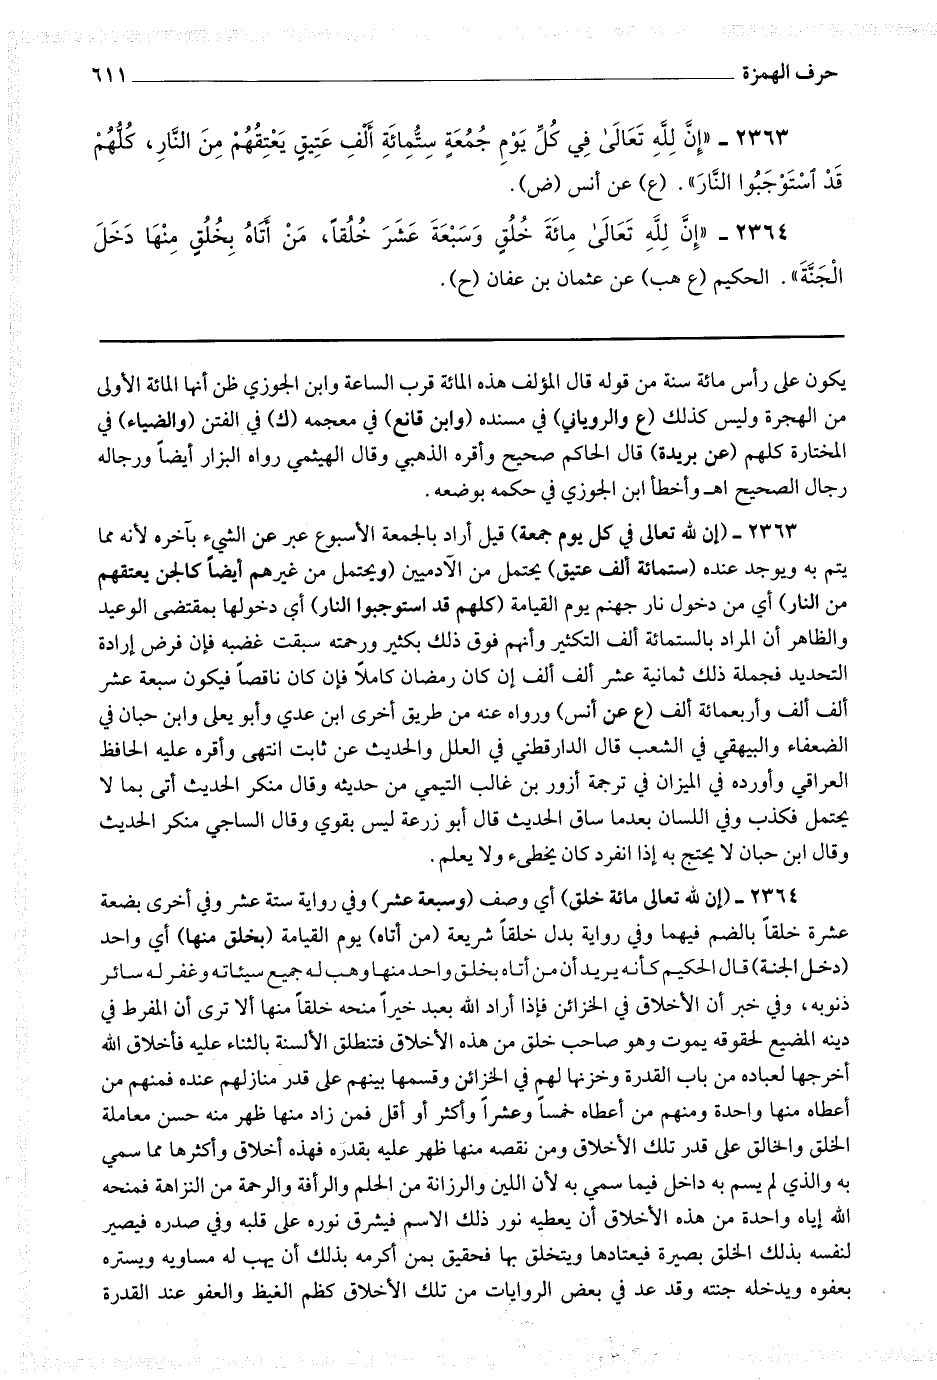 حرف الهمزة ٦١١
٢٣٦٣ ـ «إِنَّ لِلَّهِ تَعَالَىٰ فِي كُلِّ يَوْمِ جُمُعَةٍ سِتُّمِائَةِ أَلْفِ عَتِيقٍ يَعْتِقُهُمْ مِنَ النَّارِ، كُلُّهُمْ
قَدْ ٱسْتَوْجَبُوا النَّارَ». (ع) عن أنس (ض).
٢٣٦٤ ـ «إِنَّ لِلَّهِ تَعَالَىٰ مِائَةَ خُلُقٍ وَسَبْعَةَ عَشَرَ خُلُقاً، مَنْ أَتَاهُ بِخُلُقٍ مِنْهَا دَخَلَ
الْجَنَّةَ». الحكيم (ع هب) عن عثمان بن عفان (ح).
يكون على رأس مائة سنة من قوله قال المؤلف هذه المائة قرب الساعة وابن الجوزي ظن أنها المائة الأولى
من الهجرة وليس كذلك (ع والروياني) في مسنده (وابن قانع) في معجمه (ك) في الفتن (والضياء) في
المختارة كلهم (عن بريدة) قال الحاكم صحيح وأقره الذهبي وقال الهيثمي رواه البزار أيضاً ورجاله
رجال الصحيح اهـ وأخطأ ابن الجوزي في حكمه بوضعه.
٢٣٦٣ ـ (إن لله تعالى في كل يوم جمعة) قيل أراد بالجمعة الأسبوع عبر عن الشيء بآخره لأنه مما
يتم به ويوجد عنده (ستمائة ألف عتيق) يحتمل من الآدميين (ويحتمل من غيرهم أيضاً كالجن يعتقهم
من النار) أي من دخول نار جهنم يوم القيامة (كلهم قد استوجبوا النار) أي دخولها بمقتضى الوعيد
والظاهر أن المراد بالستمائة ألف التكثير وأنهم فوق ذلك بكثير ورحمته سبقت غضبه فإن فرض إرادة
التحديد فجملة ذلك ثمانية عشر ألف ألف إن كان رمضان كاملاً فإن كان ناقصاً فيكون سبعة عشر
ألف ألف وأربعمائة ألف (ع عن أنس) ورواه عنه من طريق أخرى ابن عدي وأبو يعلى وابن حبان في
الضعفاء والبيهقي في الشعب قال الدارقطني في العلل والحديث عن ثابت انتهى وأقره عليه الحافظ
العراقي وأورده في الميزان في ترجمة أزور بن غالب التيمي من حديثه وقال منكر الحديث أتى بما لا
يحتمل فكذب وفي اللسان بعدما ساق الحديث قال أبو زرعة ليس بقوي وقال الساجي منكر الحديث
وقال ابن حبان لا يحتج به إذا انفرد كان يخطىء ولا يعلم.
٢٣٦٤ ـ (إن لله تعالى مائة خلق) أي وصف (وسبعة عشر) وفي رواية ستة عشر وفي أخرى بضعة
عشرة خلقاً بالضم فيهما وفي رواية بدل خلقاً شريعة (من أتاه) يوم القيامة (بخلق منها) أي واحد
(دخل الجنة) قال الحكيم كأنه يريد أن من أتاه بخلق واحد منها وهب له جميع سيئاته وغفر له سائر
ذنوبه، وفي خبر أن الأخلاق في الخزائن فإذا أراد الله بعبد خيراً منحه خلقاً منها ألا ترى أن المفرط في
دينه المضيع لحقوقه يموت وهو صاحب خلق من هذه الأخلاق فتنطلق الألسنة بالثناء عليه فأخلاق الله
أخرجها لعباده من باب القدرة وخزنها لهم في الخزائن وقسمها بينهم على قدر منازلهم عنده فمنهم من
أعطاه منها واحدة ومنهم من أعطاه خمساً وعشراً وأكثر أو أقل فمن زاد منها ظهر منه حسن معاملة
الخلق والخالق على قدر تلك الأخلاق ومن نقصه منها ظهر عليه بقدره فهذه أخلاق وأكثرها مما سمي
به والذي لم يسم به داخل فيما سمي به لأن اللين والرزانة من الحلم والرأفة والرحمة من النزاهة فمنحه
الله إياه واحدة من هذه الأخلاق أن يعطيه نور ذلك الاسم فيشرق نوره على قلبه وفي صدره فيصير
لنفسه بذلك الخلق بصيرة فيعتادها ويتخلق بها فحقيق بمن أكرمه بذلك أن يهب له مساويه ويستره
بعفوه ويدخله جنته وقد عد في بعض الروايات من تلك الأخلاق كظم الغيظ والعفو عند القدرة